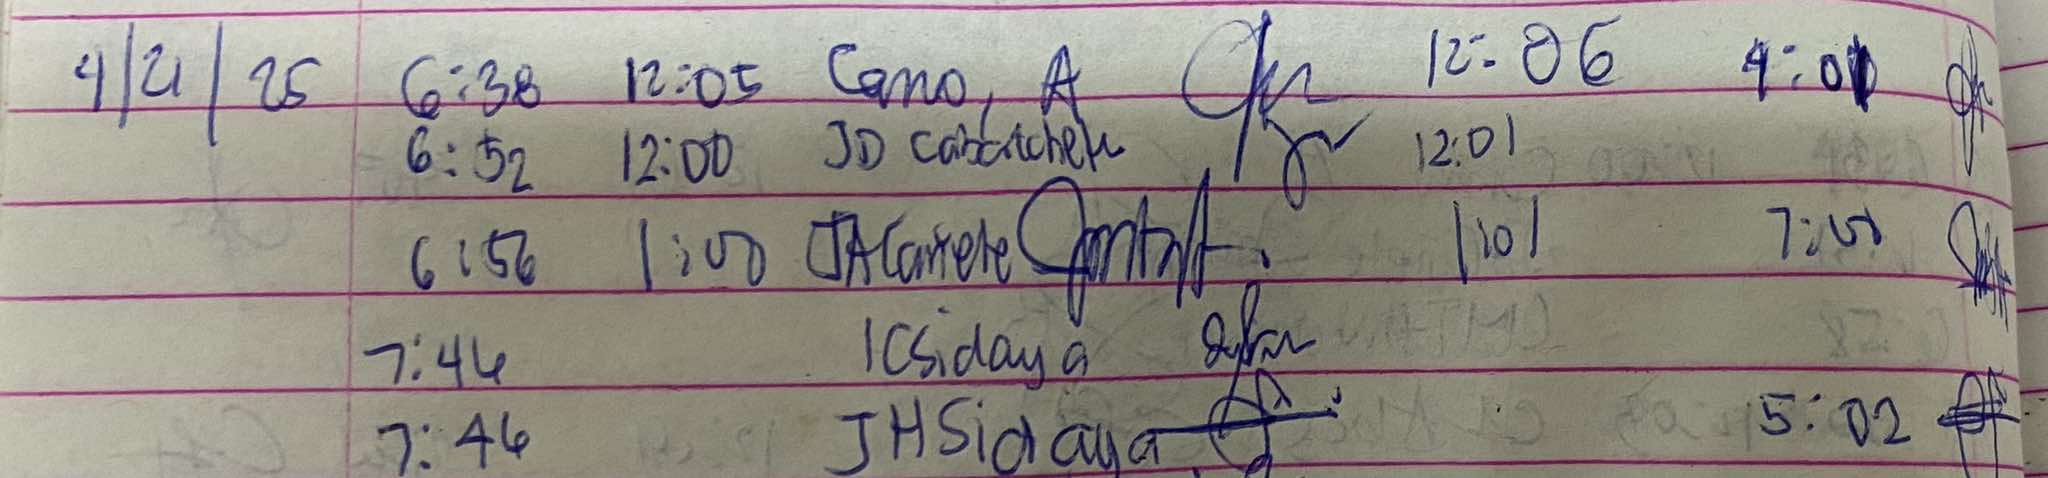 4/21/25 6:38 12:05 Cano, A 12:06 4:01
6:52 12:00 JD 12:01
6:56 1:00 JACarrete 1:01 7:00
7:46 ICSidaya
7:46 JHSidaya 5:02